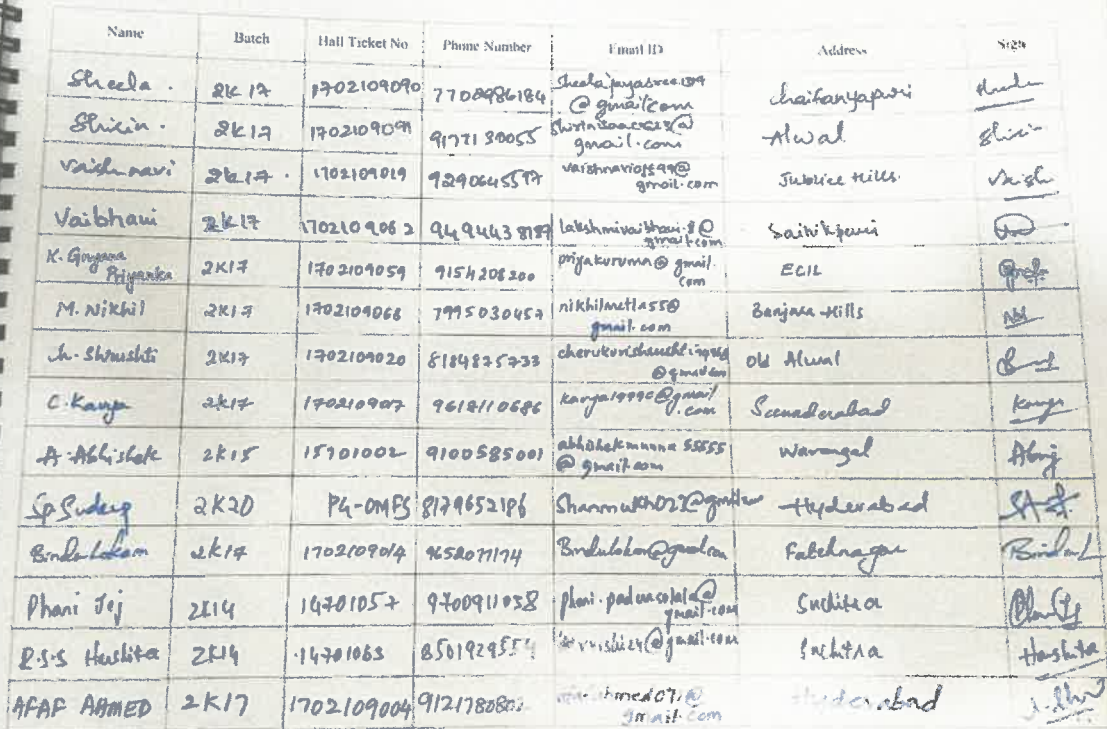 Name Batch Hall Ticket No Phone Number Email ID Address Sign
Sheela . 2K17 1702109090 7702986184 @gmail.com Chaitanyapuri
Shirin . 2K17 1702109091 9177130055 @gmail.com Alwal Shirin
Vaishnavi 2K17 . 1702109019 9290645597 @gmail.com Jubilee Hills. Vaish
Vaibhavi 2K17 1702109062 9494438189 lakshmivaibhavi.8@gmail.com Sainikpuri
K. Priyanka 2K17 1702109059 9154208200 priyakuruma@gmail.com ECIL
M. Nikhil 2K17 1702109066 7995030457 nikhilmetla55@gmail.com Banjara Hills
Ch. Shrushti 2K17 1702109020 8184875733 @gmail.com Old Alwal
C. Kavya 2K17 170210907 9618110686 kavya1999c@gmail.com Secunderabad Kavya
A. Abhishek 2K15 15701002 9100585001 abhishekmunna55555@gmail.com Warangal Abhij
2K20 PG-OMFS 8179652196 Hyderabad
Bindu Lokam 2K17 1702109014 9652077174 Bindulokam@gmail.com Fatehnagar Bindu L
Phani Tej 2K14 14701057 9700911058 @gmail.com Suchitra
R.S.S Harshita 2K14 14701063 8501929554 @gmail.com Suchitra Harshita
AFAF AHMED 2K17 1702109004 @gmail.com Hyderabad